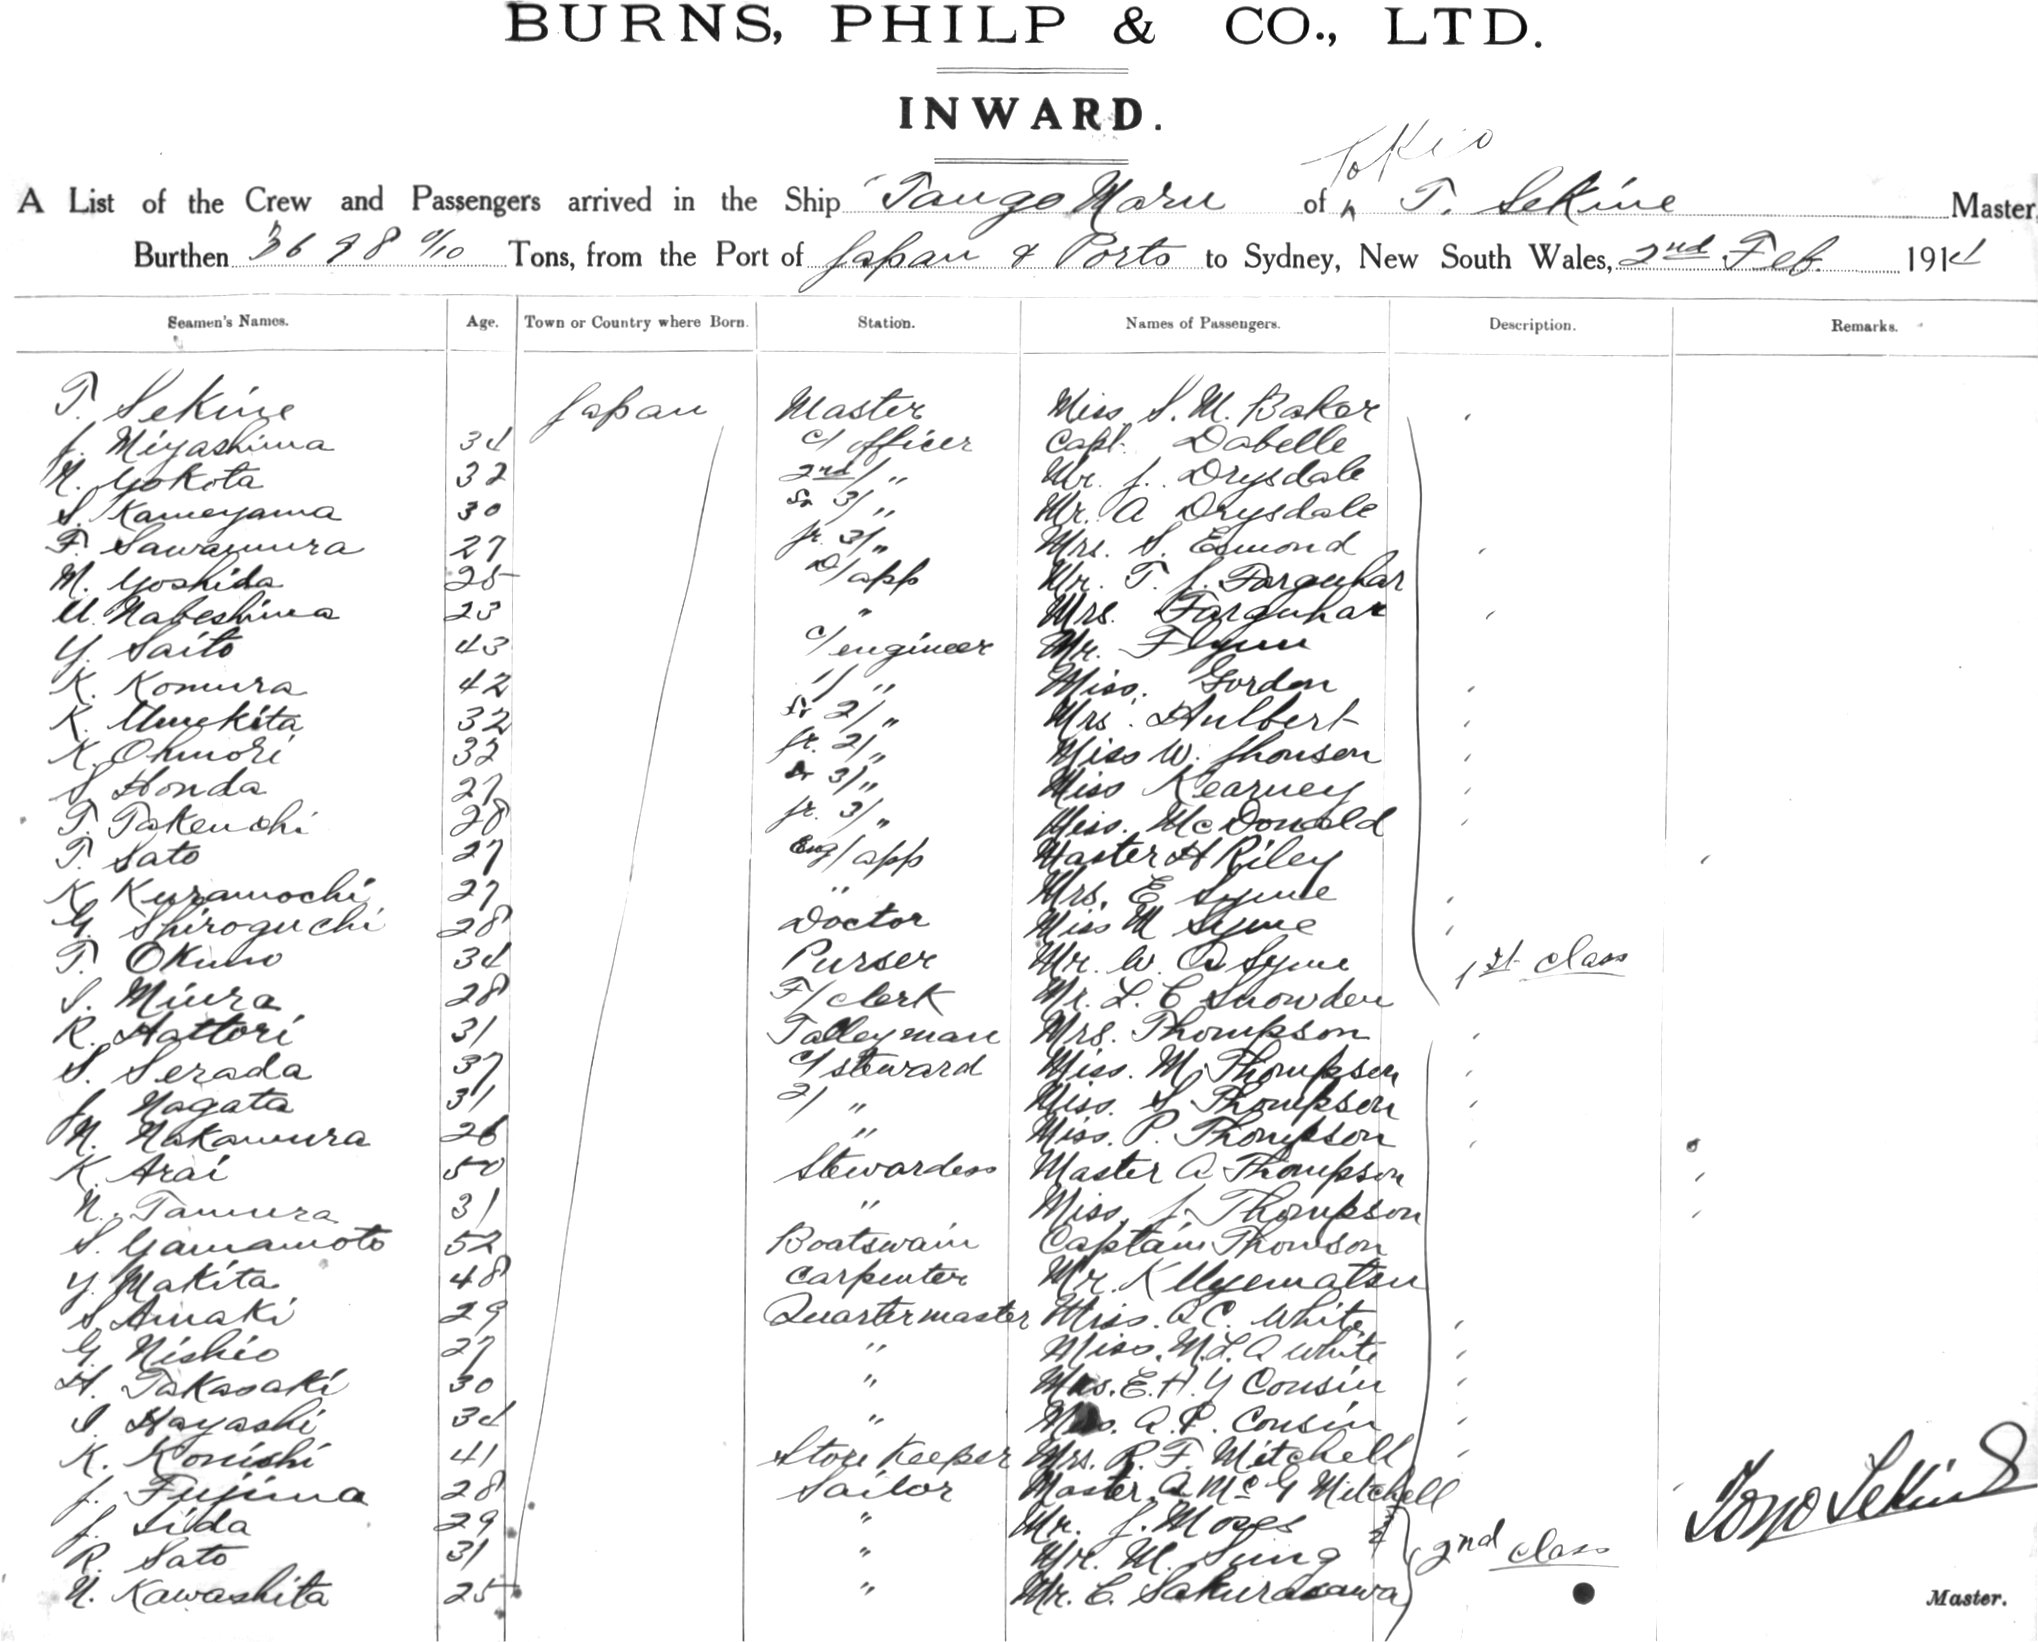 BURNS, PHILP & CO., LTD.
INWARD.
Tokio
A List of the Crew and Passengers arrived in the Ship Tango Maru of ^ T. Sekine Master,
Burthen Tons, from the Port of Japan & Ports to Sydney, New South Wales, 2nd Feb. 1914
Seamen's Names. Age. Town or Country where Born. Station. Names of Passengers. Description. Remarks.
T. Sekine Japan Master Miss. S. M. Baker
J. Miyashima 34 c/ officer Capt. Dabelle
N. Yokota 32 2nd/ " Mr. J. Drysdale
S. Kameyama 30 Sr 3/ " Mr. A Drysdale
F. Sawamura 27 Jr. 3/ " Mrs. S. Esmond
M. Yoshida 25 D/ app Mr. T. J. Farquhar
U. Nabeshima 23 " Mrs. Farquhar
Y. Saito 43 c/ engineer Mr. Flynn
K. Komura 42 1/ " Miss. Gordon
K. Umekita 32 Sr 2/ " Mrs. Hulbert
K. Ohmori 32 Jr. 2/ " Miss W. Jhonson
S Honda 27 Sr 3/ " Miss Kearney
T. Takeuchi 28 Jr. 3/ " Miss. McDonald
T. Sato 27 Eng/ app Master H Riley
K. Kuramochi 27 " Mrs. E Syme
G. Shiroguchi 28 Doctor Miss M Syme
T. Okuno 34 Purser Mr. W. A Syme 1st class
S. Miura 28 F/ clerk Mr. L. C Snowden
R. Hattori 31 Talleyman Mrs. Thompson
S. Serada 37 c/ steward Miss. M. Thompson
J. Nagata 31 2/ " Miss. S Thompson
N. Nakamura 26 " Miss. P. Thompson
K. Arai 50 Stewardess Master A Thompson
N. Tamura 31 " Miss J. Thompson
S. Yamamoto 52 Boatswain Captain Thomson
Y. Makita 48 Carpenter Mr. K Uyematsu
S. Amaki 29 Quartermaster Miss. A C. White
G. Nishio 27 " Miss. M. L. A White
H. Takasaki 30 " Mrs. E. H. Y Cousin
I. Hayashi 34 " A. P. Cousin
K. Konishi 41 Store Keeper Mrs. R. F. Mitchell
J. Fujima 28 Sailor Master A Mc G Mitchell
J. Iida 29 " Mr. J. Moses
R. Sato 31 " Mr. M. Sung 2nd class
N. Kawashita 25 " Mr. C. Sakurasawa
Toyo Sekine
Master.